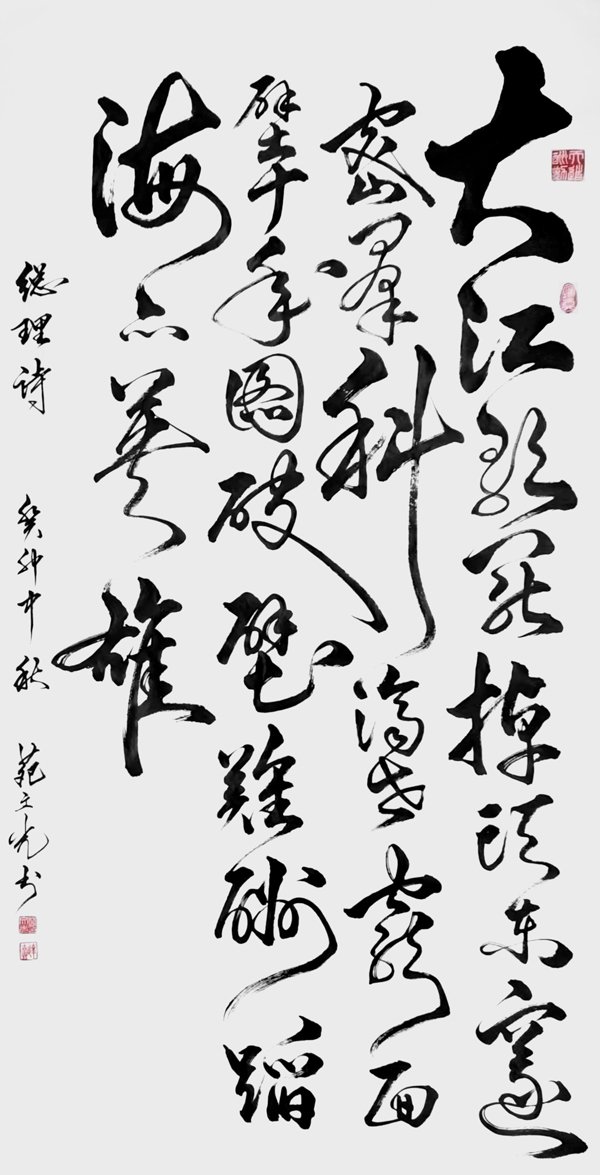 大江歌罷掉頭東邃
密羣科濟世窮面
壁十年圖破壁難酬蹈
海亦英雄
總理詩 癸卯中秋